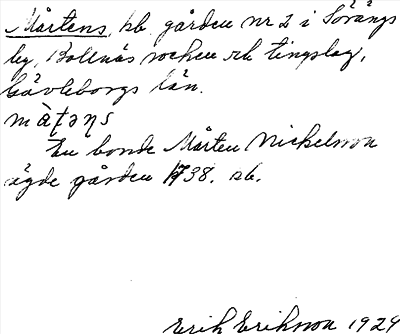 Mårtens, kb. gården nr 2 i Sörängs
by, Bollnäs socken och tingslag,
Gävleborgs län.
En bonde Mårten Nickelsson
ägde gården 1738. kb.
Erik Erikson 1929